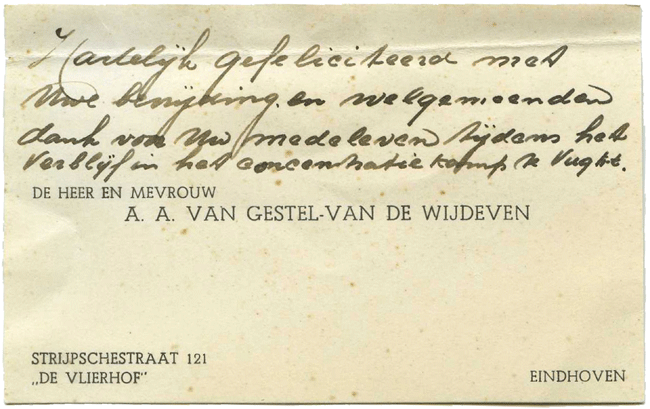 Hartelijk gefeliciteerd met
Uwe bevrijding en welgemeenden
dank voor Uw medeleven tijdens het
verblijf in het concentratiekamp te Vught.
DE HEER EN MEVROUW
A. A. VAN GESTEL-VAN DE WIJDEVEN
STRIJPSCHESTRAAT 121
„DE VLIERHOF"
EINDHOVEN